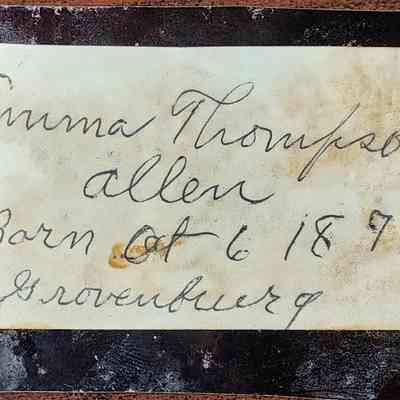 Emma Thompso
Allen
Born Oct 6 187
Grovenburg